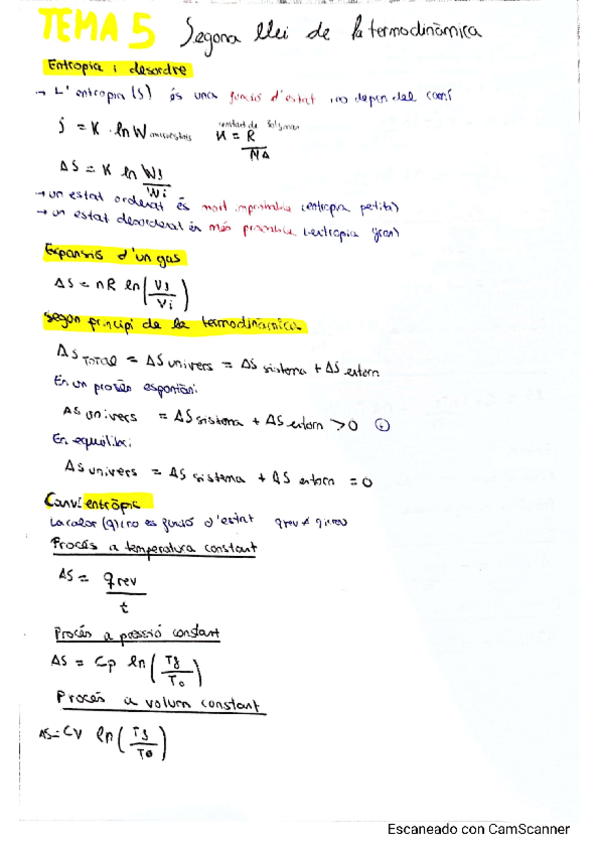 TEMA 5 Segona llei de la termodinàmica
Entropia i desordre
→ L'entropia (S) és una funció d'estat, no depen del camí
S = K · ln W microestats constant de Bolzman K = R / NA
ΔS = K ln Wf / Wi
→ un estat ordenat és molt improbable (entropia petita)
→ un estat desordenat és més probable (entropia gran)
Expansió d'un gas
ΔS = nR ln (Vf / Vi)
Segon principi de la termodinàmica
ΔS TOTAL = ΔS univers = ΔS sistema + ΔS entorn
En un procés espontàni:
ΔS univers = ΔS sistema + ΔS entorn > 0
En equilibri:
ΔS univers = ΔS sistema + ΔS entorn = 0
Canvi entròpic
La calor (q) no es funció d'estat qrev ≠ qirrev
Procés a temperatura constant
ΔS = qrev / t
Procés a pressió constant
ΔS = Cp ln (Tf / To)
Procés a volum constant
ΔS = Cv ln (Tf / To)
Escaneado con CamScanner